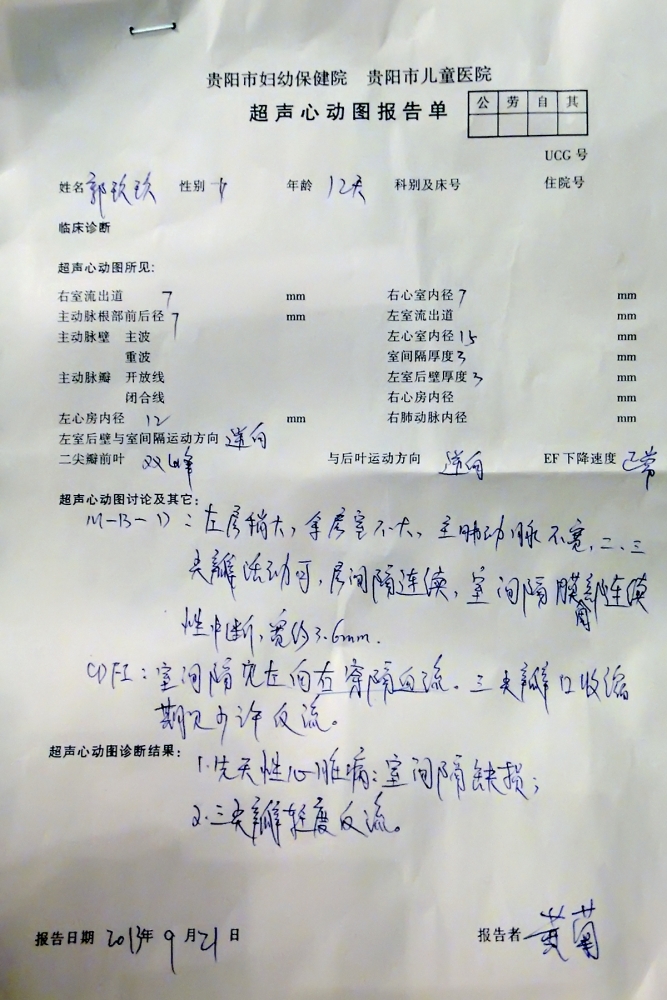 贵阳市妇幼保健院 贵阳市儿童医院
超声心动图报告单
公 劳 自 其
UCG 号
姓名 郭玖玖 性别 年龄 12天 科别及床号 住院号
临床诊断
超声心动图所见:
右室流出道 7 mm 右心室内径 7 mm
主动脉根部前后径 7 mm 左室流出道 mm
主动脉壁 主波 左心室内径 15 mm
重波 室间隔厚度 3 mm
主动脉瓣 开放线 左室后壁厚度 3 mm
闭合线 右心房内径 mm
左心房内径 12 mm 右肺动脉内径 mm
左室后壁与室间隔运动方向 逆向
二尖瓣前叶 双峰 与后叶运动方向 逆向 EF 下降速度 正常
超声心动图讨论及其它:
M-B-D: 左房稍大, 余房室不大, 主肺动脉不宽, 二、三
尖瓣活动可, 房间隔连续, 室间隔膜部连续
性中断, 宽约3.6mm.
CDFI: 室间隔 左向右穿隔血流. 三尖瓣口收缩
期见少许反流。
超声心动图诊断结果: 1.先天性心脏病: 室间隔缺损;
2.三尖瓣轻度反流。
报告日期 2013年 9 月 21 日 报告者 黄菊